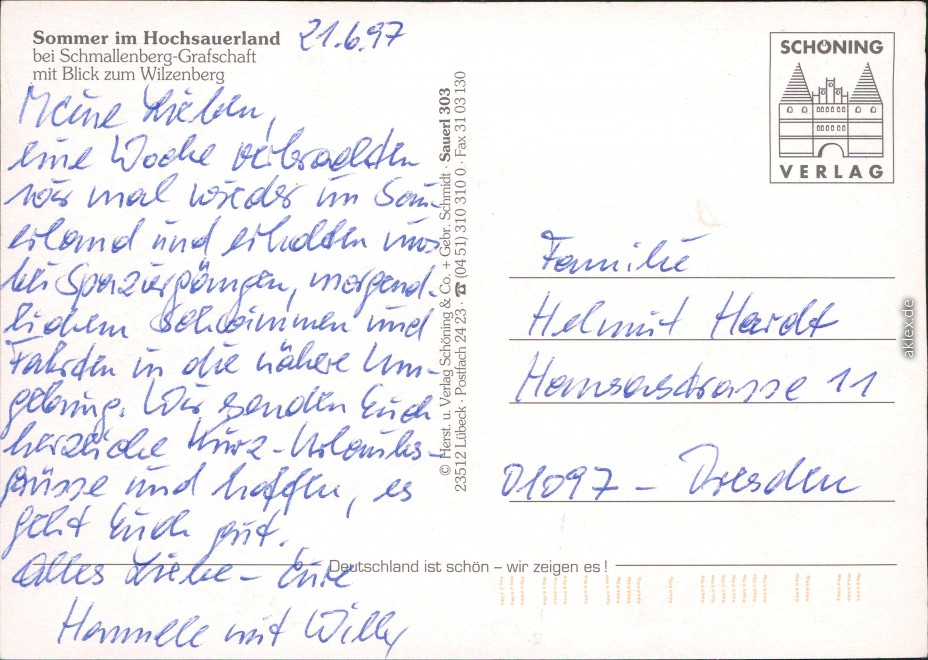 Sommer im Hochsauerland
bei Schmallenberg-Grafschaft
mit Blick zum Wilzenberg
21.6.97
Meine Lieben,
eine Woche verbrachten
wir mal wieder im Sau-
erland und erholten uns
bei Spaziergängen, morgend-
lichem Schwimmen und
Fahrten in die nähere Um-
gebung. Wir senden Euch
herzliche Kurz-Urlaubs-
grüsse und hoffen, es
geht Euch gut.
Alles Liebe - Eure
Hannelle mit Willy
© Herst. u. Verlag Schöning & Co. + Gebr. Schmidt · Sauerl 303
23512 Lübeck · Postfach 24 23 · ☎ (04 51) 310 310 0 · Fax 31 03 130
SCHÖNING
VERLAG
Familie
Helmut Hardt
Hansastrasse 11
01097 - Dresden
Deutschland ist schön – wir zeigen es !
aklex.de